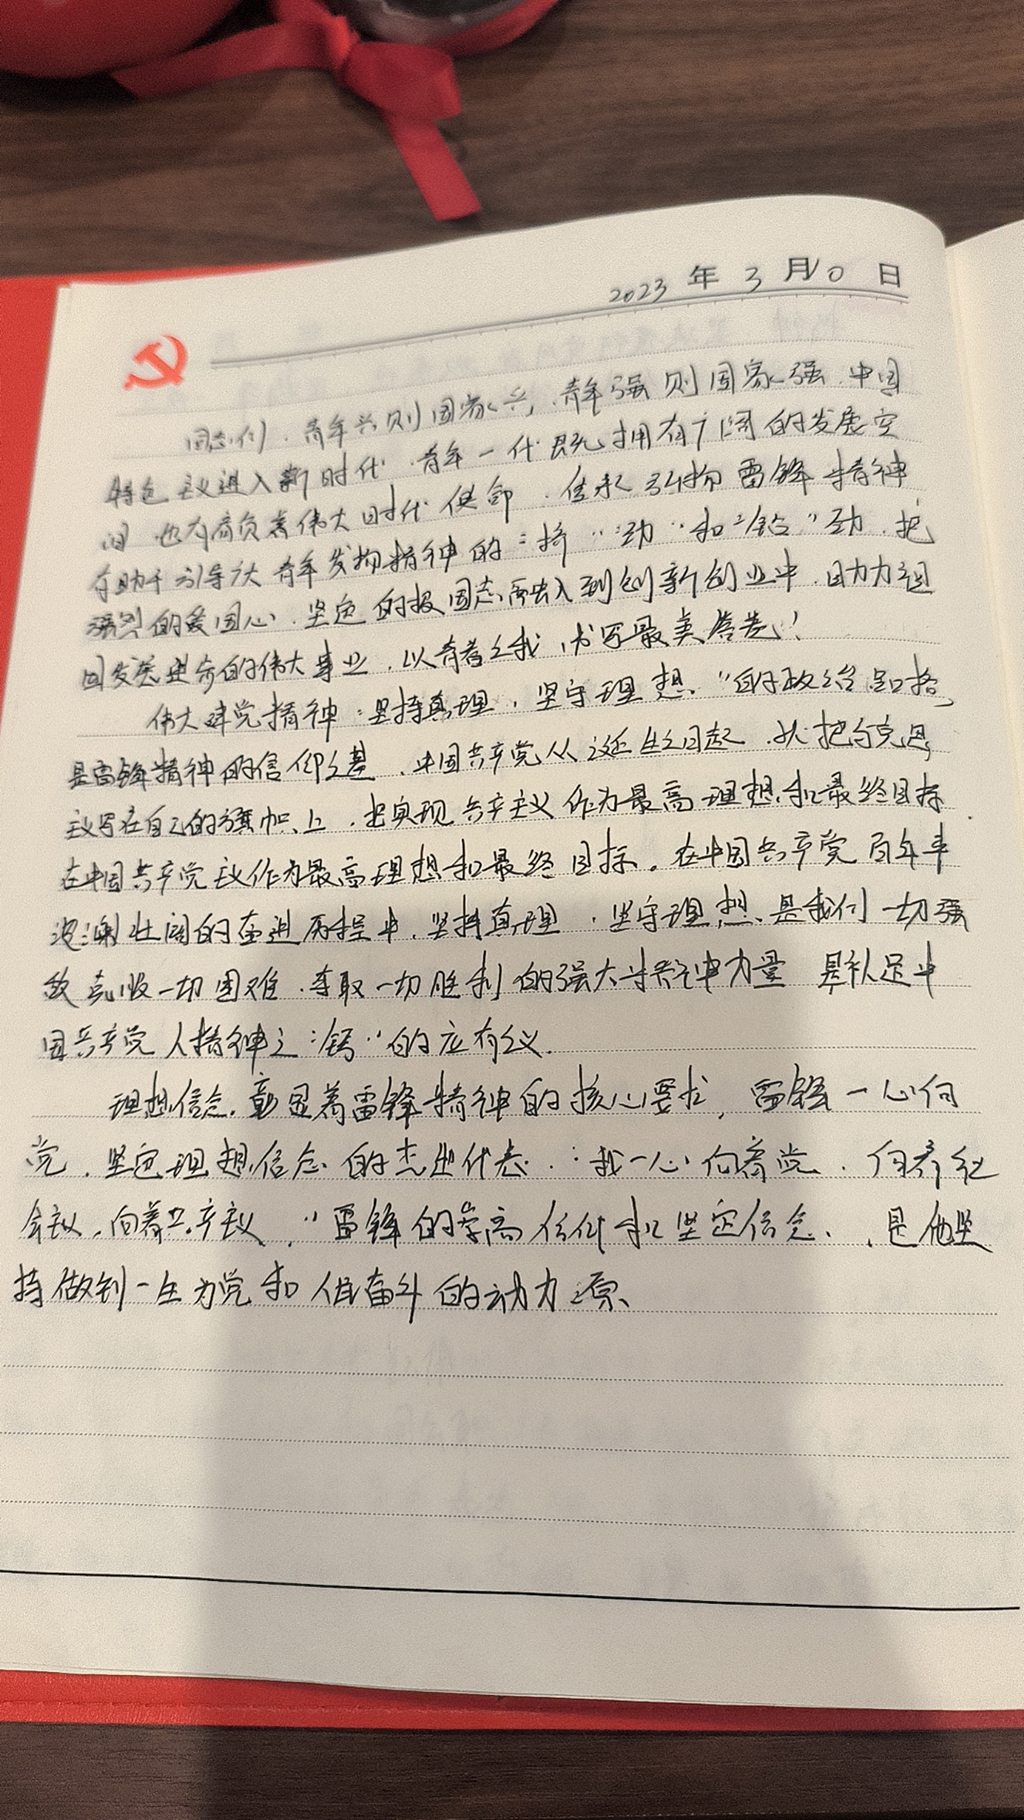 2023 年 3 月 10 日
同志们，青年兴则国家兴，青年强则国家强，中国
特色主义进入新时代，青年一代既拥有广阔的发展空
间，也有肩负着伟大时代使命，传承弘扬雷锋精神
有助于引导广大青年发扬精神的：将“动”和“钻”劲，把
强烈的爱国心，坚定的报国志，融入到创新创业中，
回发英进步的伟大事业，以青春之我，书写最美答卷！
伟大建党精神：坚持真理，坚守理想，”的政治品格，
是雷锋精神的信仰之基，中国共产党从诞生之日起，就把马克思
主义写在自己的旗帜上，把实现共产主义作为最高理想和最终目标
在中国共产党主义作为最高理想和最终目标。在中国共产党百年来
波澜壮阔的奋进历程中，坚持真理，坚守理想，是我们一切强
敌克服一切困难，夺取一切胜利的强大精神力量 是补足中
国共产党人精神之“钙”的应有义.
理想信念，彰显着雷锋精神的核心要求，雷锋一心向
党，坚定理想信念的杰出代表：“我一心向着党，向着社
会主义，向着共产主义，”雷锋的崇高信仰和坚定信念，是他坚
持做到一生为党和人民奋斗的动力之源、